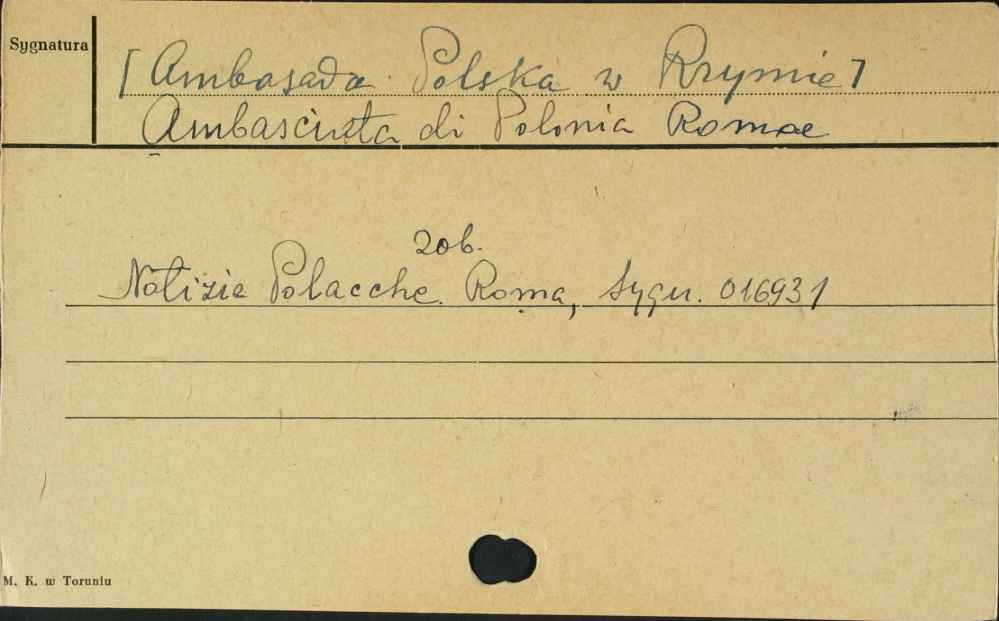 Sygnatura
[Ambasada Polska w Rzymie]
Ambasciata di Polonia Romae
Zob.
Notizie Polacche. Roma, Sygn. 016931
M. K. w Toruniu